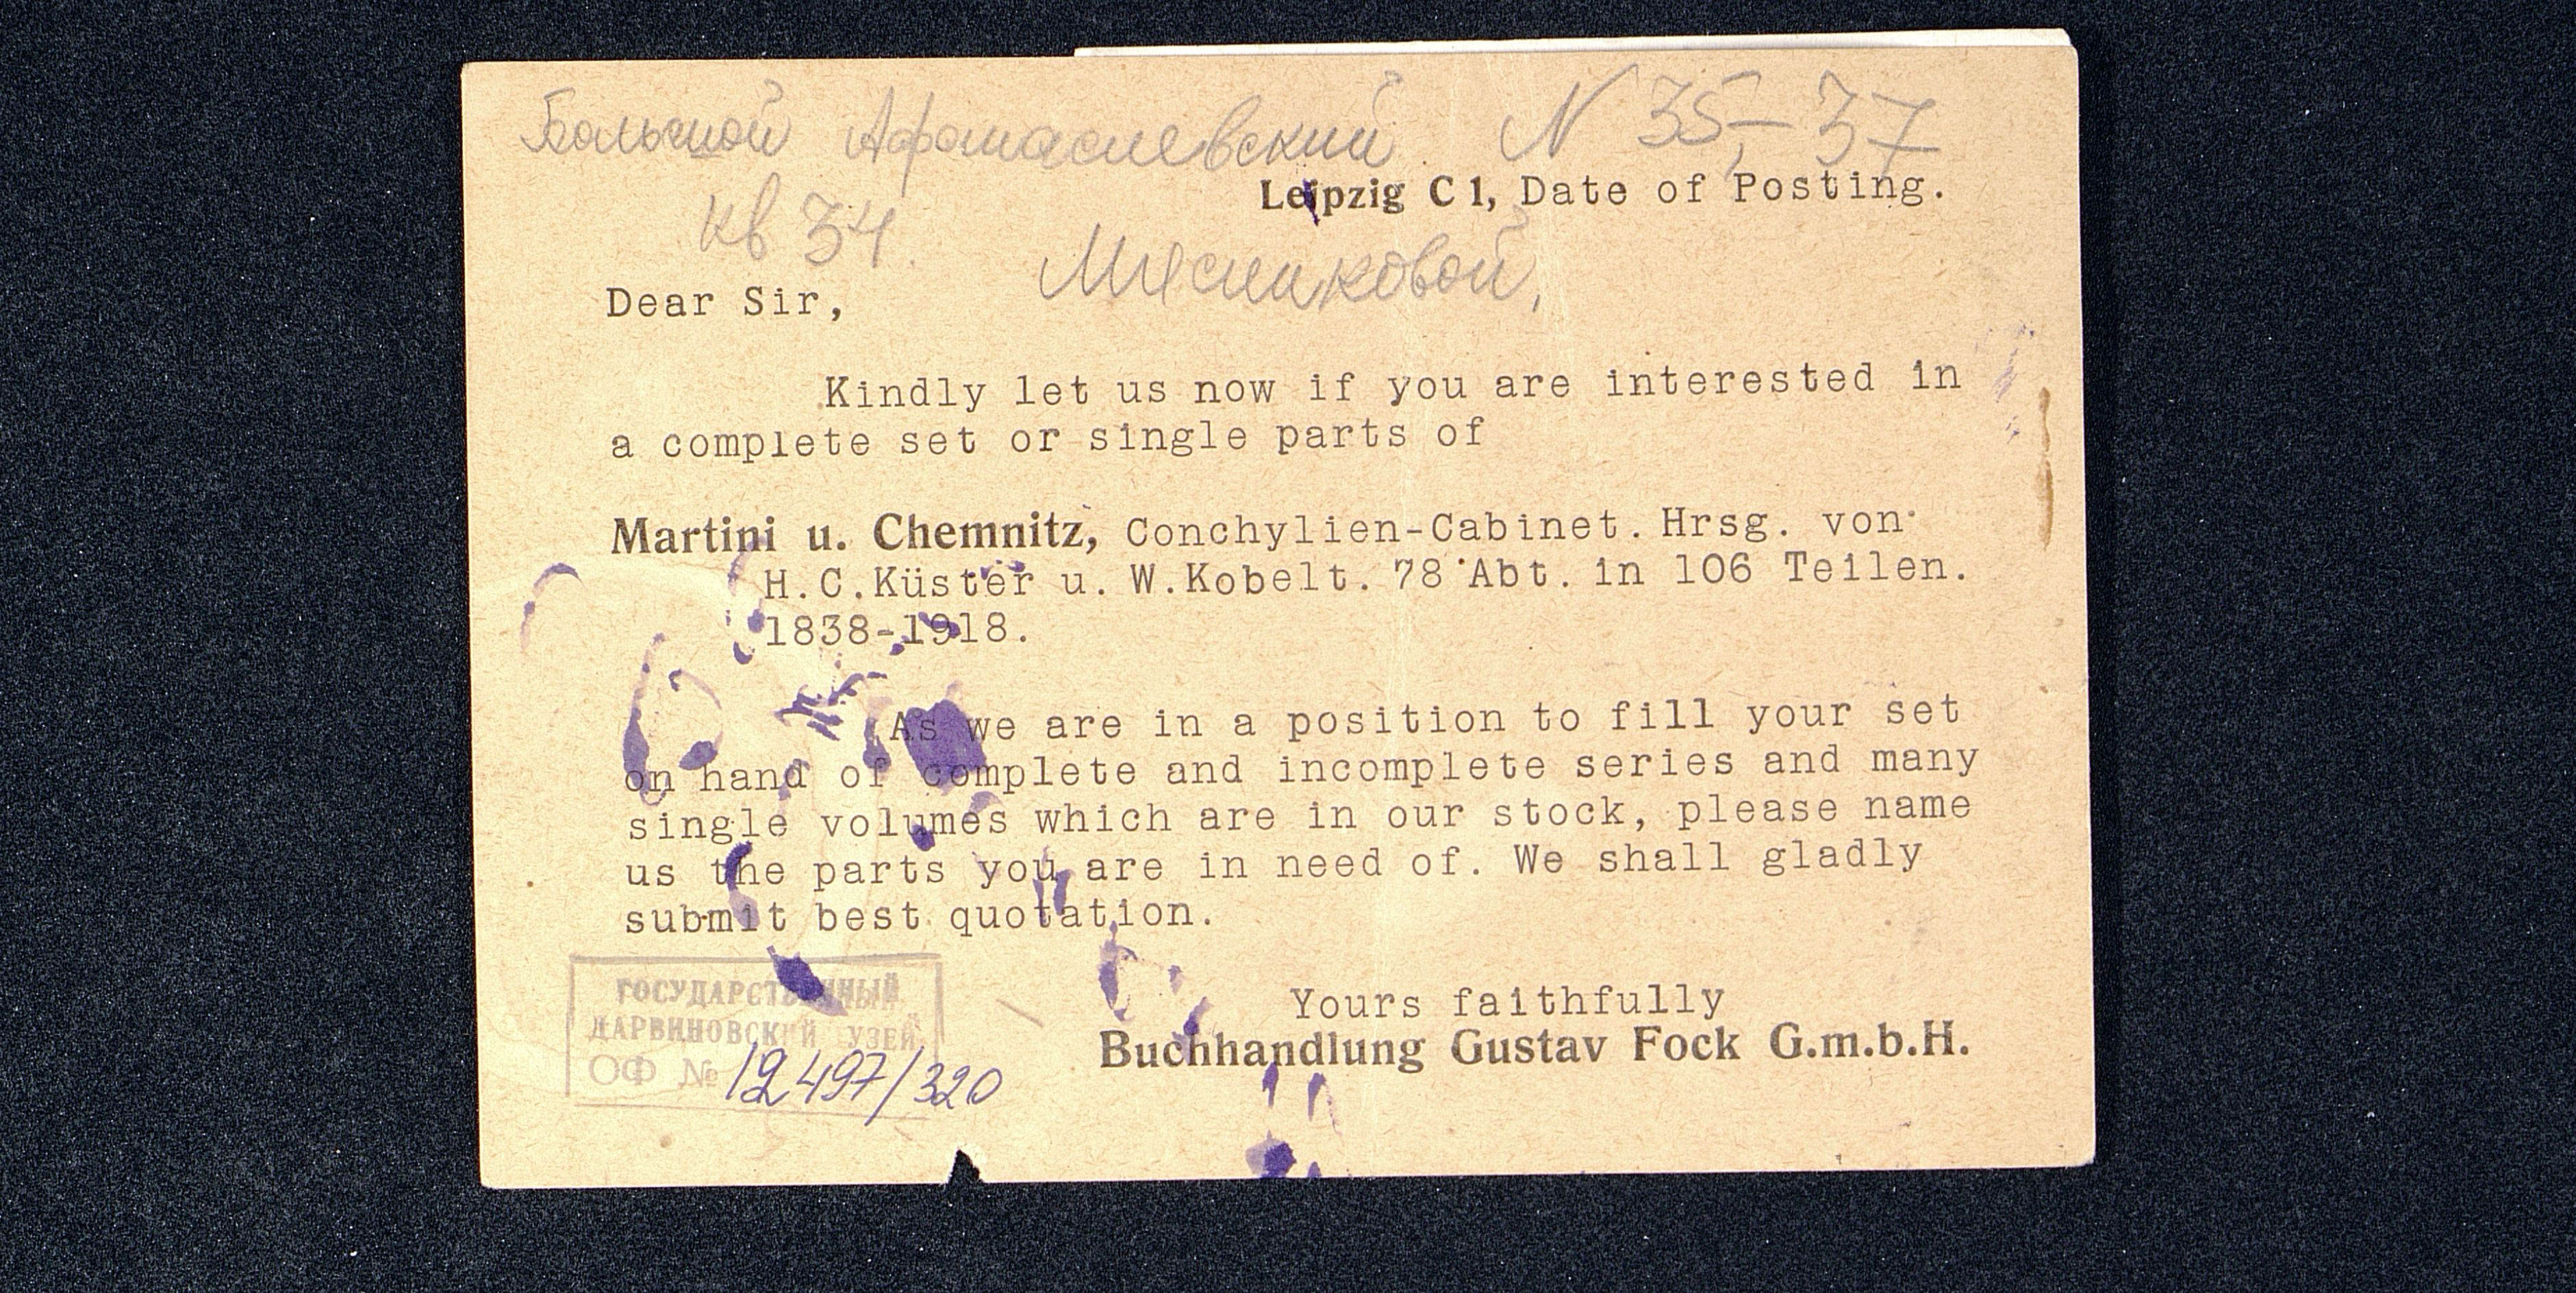 Большой Афанасиевский N 35-37
Leipzig C 1, Date of Posting.
кв 34.
Мясниковой,
Dear Sir,
Kindly let us now if you are interested in
a complete set or single parts of
Martini u. Chemnitz, Conchylien-Cabinet. Hrsg. von
H.C.Küster u. W.Kobelt. 78 Abt. in 106 Teilen.
1838-1918.
As we are in a position to fill your set
on hand of complete and incomplete series and many
single volumes which are in our stock, please name
us the parts you are in need of. We shall gladly
submit best quotation.
Yours faithfully
Buchhandlung Gustav Fock G.m.b.H.
ГОСУДАРСТВЕННЫЙ
ДАРВИНОВСКИЙ МУЗЕЙ
ОФ № 12497/320